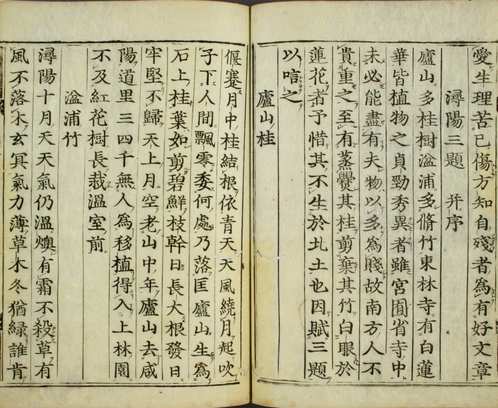 愛生理苦已傷方知自殘者爲有好文章
潯陽三題 并序
廬山多桂樹湓浦多脩竹東林寺有白蓮
華皆植物之貞勁秀異者雖宮囿省寺中
未必能盡有夫物以多爲賤故南方人不
貴重之至有蒸爨其桂剪棄其竹白眼於
蓮花者予惜其不生於北土也因賦三題
以唁之
廬山桂
偃蹇月中桂結根依青天天風繞月起吹
子下人間飄零委何處乃落匡廬山生爲
石上桂葉如剪碧鮮枝幹日長大根發日
牢堅不歸天上月空老山中年廬山去咸
陽道里三四千無人爲移植得入上林園
不及紅花樹長栽溫室前
湓浦竹
潯陽十月天天氣仍溫燠有霜不殺草有
風不落木玄冥氣力薄草木冬猶綠誰肯